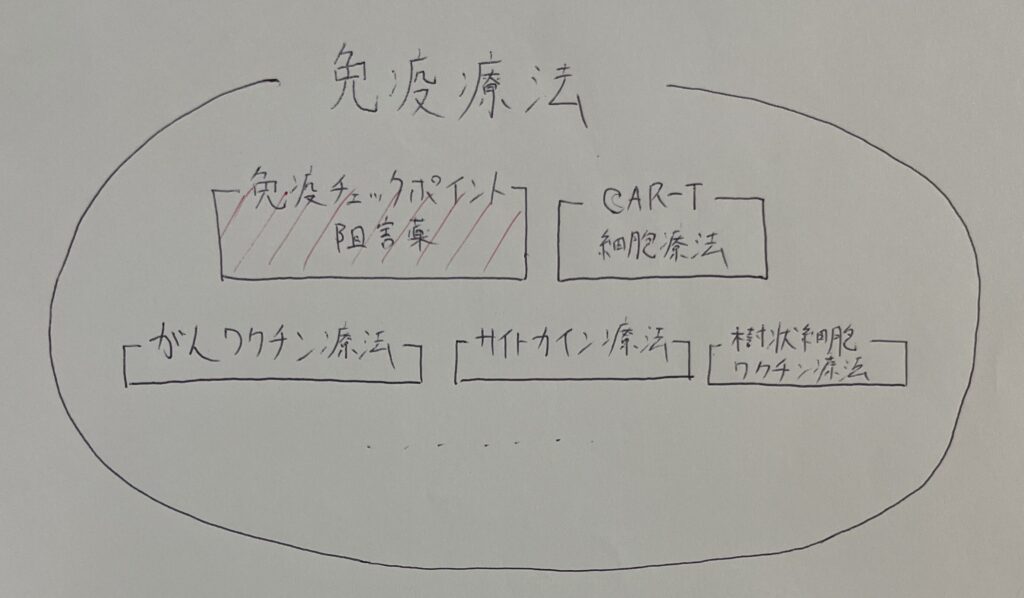 免疫療法
免疫チェックポイント
阻害薬
CAR-T
細胞療法
がんワクチン療法
サイトカイン療法
樹状細胞
ワクチン療法
.......